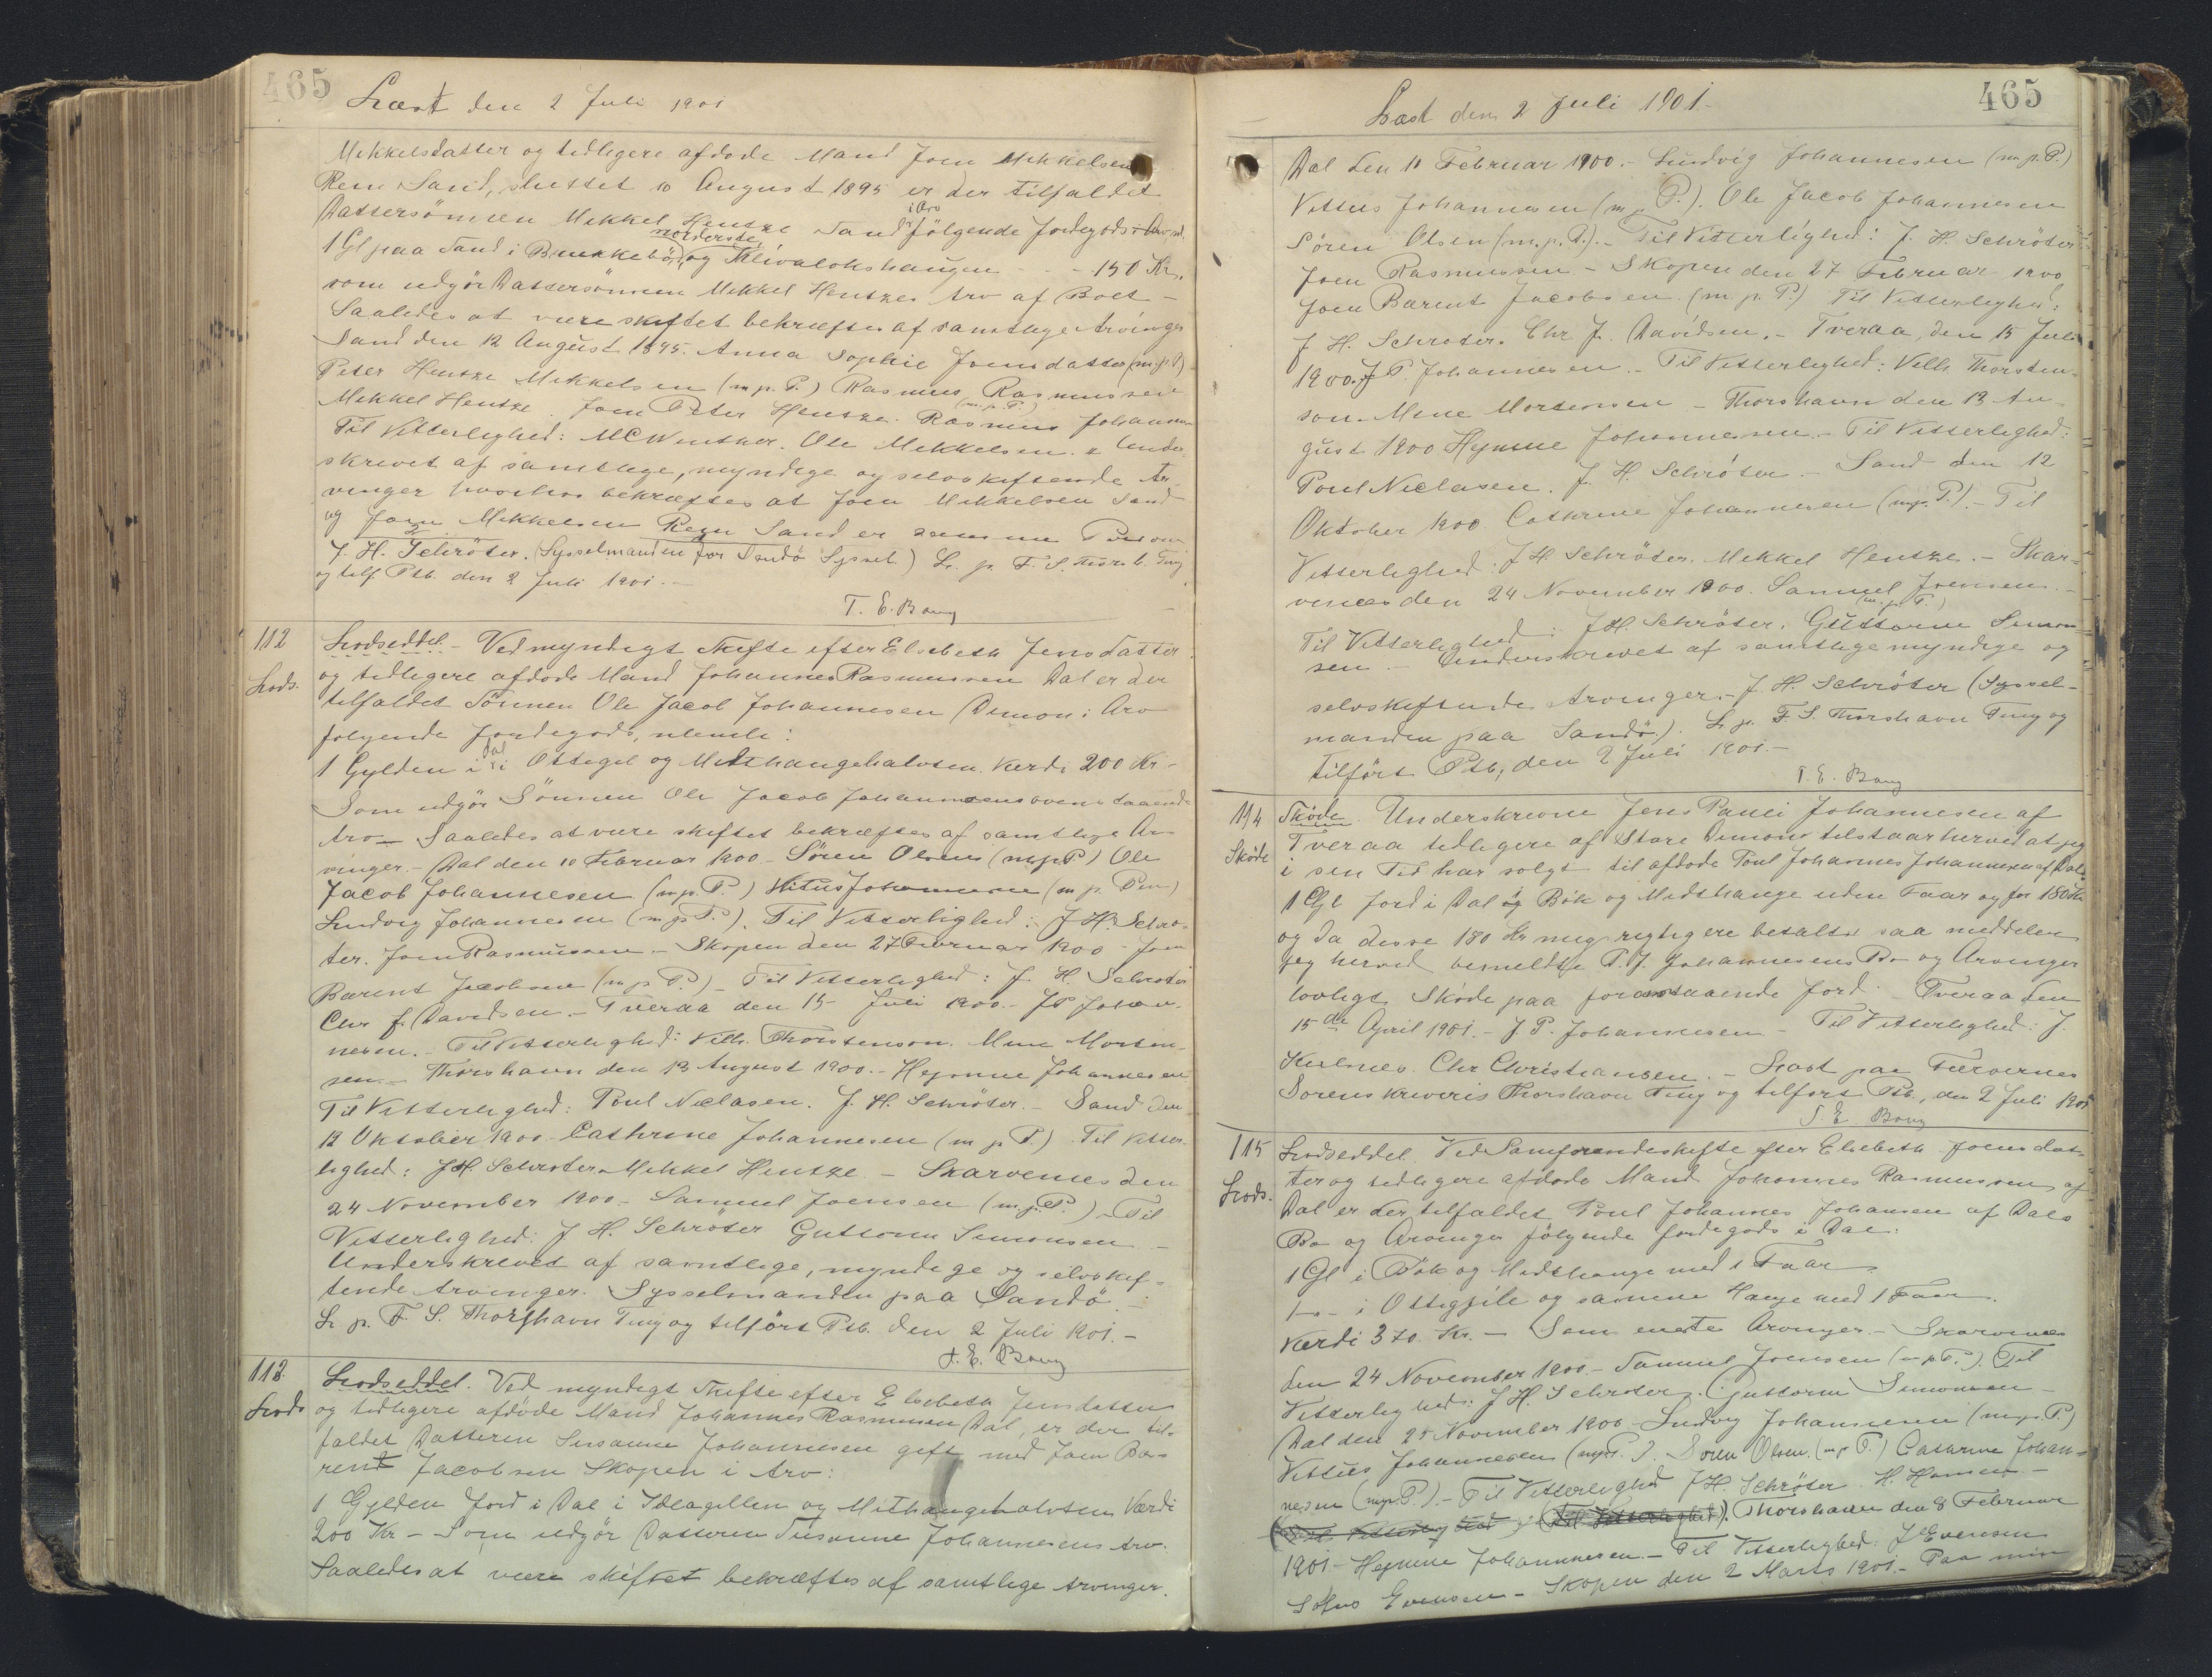 465
Læst den 2 Juli 1901
Mikkelsdatter og tidligere afdøde Mand Joen Mikkelsen
Reyn Sand, sluttet 10 August 1895 er der tilfaldet
Dattersönnen Mikkel Hentze Sand i Arv fölgende Jordegods
1 Gl paa Sand i norderste og 150 Kr.
som udgör Dattersönnen Mikkel Hentzes Arv af Boet -
Saaledes at være skiftet bekræftes af samtlige Arvinger
Sand den 12 August 1895. Anna Sophie Joensdatter (m.p.P)
Peter Hentze Mikkelsen (m.p.P.) Rasmus Rasmussen
Mikkel Hentze. Joen Peter Hentze. (m.p.P.) Rasmus Johannesen
Til Vitterlighed: MCWinther. Ole Mikkelsen. Under-
skrevet af samtlige, myndige og selvskiftende Ar-
vinger hvorhos bekræftes at Joen Mikkelsen Sand
og Joen Mikkelsen Reyn Sand er samme Person
J. H. Schröter. (Sysselmanden for Sandö Syssel.) L. p. F. S. Thorsh. Ting
og tilf. Ptb. den 2 Juli 1901. -
T. E. Bang
112
Lods.
Lodseddel. - Ved myndigt Skifte efter Elsebeth Jensdatter
og tidligere afdöde Mand Johannes Rasmussen Dal er der
tilfaldet Sönnen Ole Jacob Johannesen Dimon i Arv
følgende Jordegods, nemlig:
1 Gylden i Dal i Ottegil og Midthangehalvsen. Værdi 200 Kr -
Som udgör Sönnen Ole Jacob Johannesens ovenstaaende
Arv - Saaledes at være skiftet bekræftes af samtlige Ar-
vinger. - Dal den 10 Februar 1900 - Sören Olsen (m.p.P) Ole
Jacob Johannesen (m.p.P.) Vitus Johannesen (m.p. Pen)
Ludvig Johannesen (m.p.P.). Til Vitterlighed: J. H. Schrö-
ter. Joen Rasmussen. - Skopen den 27 Februar 1900 - Joen
Barent Jacobsen (m.p.P.) - Til Vitterlighed: J. H. Schröter
Chr J. Davidsen. - Tveraa den 15 Juli 1900. - JP Johan-
nesen. - Til Vitterlighed: Vilh. Thorstenson. Mine Morten-
sen. - Thorshavn den 13 August 1900. - Hejnine Johannesen
Til Vitterlighed: Poul Niclasen. J. H. Schröter. - Sand den
12 Oktober 1900 - Cathrine Johannesen (m.p.P.) Til Vitter-
lighed: J.H. Schröter. Mikkel Hentze - Skarvenes den
24 November 1900 - Samuel Joensen (m.p.P.) - Til
Vitterlighed: J H. Schröter Guttorm Simonsen -
Underskrevet af samtlige, myndige og selvskif-
tende Arvinger. Sysselmanden paa Sandö. -
L. p. F. S. Thorshavn Ting og tilfört Ptb. den 2 Juli 1901. -
T. E. Bang
113.
Lods
Lodseddel. Ved myndigt Skifte efter Elsebeth Jensdatter
og tidligere afdöde Mand Johannes Rasmussen Dal, er der til-
faldet Datteren Susanne Johannesen gift med Joen Ba-
rent Jacobsen Skopen i Arv:
1 Gylden Jord i Dal i og Mithangehalvsen Værdi
200 Kr - Som udgör Datteren Susanne Johannesens Arv.
Saaledes at være skiftet bekræftes af samtlige Arvinger.
465
Læst den 2 Juli 1901 -
Dal den 10 Februar 1900. - Ludvig Johannesen (m.p.P.)
Vittus Johannesen (m.p.P.). Ole Jacob Johannesen
Sören Olsen (m.p.P.). - Til Vitterlighed: J. H. Schröter
Joen Rasmussen - Skopen den 27 Februar 1900
Joen Barent Jacobsen. (m.p.P.) Til Vitterlighed:
J. H. Schröter. Chr J. Davidsen. - Tveraa, den 15 Juli
1900. J P. Johannesen. - Til Vitterlighed: Vilh. Thorsten-
son. Mine Mortensen - Thorshavn den 13 Au-
gust 1900 Hejnine Johannesen. - Til Vitterlighed:
Poul Niclasen. J. H. Schröter - Sand den 12
Oktober 1900. Cathrine Johannesen (m.p.P.). - Til
Vitterlighed: J H. Schröter. Mikkel Hentze. - Skar-
venes den 24 November 1900. Samuel Joensen. -
Til Vitterlighed: J.H. Schröter. (m.p.P.) Guttorm Simon-
sen. - Underskrevet af samtlige myndige og
selvskiftende Arvinger. - J. H. Schröter (Syssel-
manden paa Sandö). L. p. F. S. Thorshavn Ting og
tilfört Ptb., den 2 Juli 1901. -
T. E. Bang
114
Skøde
Skøde. Underskrevne Jens Pauli Johannesen af
Tveraa tidligere af Store Dimon tilstaar herved at jeg
i sin Tid har solgt til afdøde Poul Johannes Johannesen af Dal
1 Gl Jord i Dal og Bök og Midthange uden Faar og for 180 Kr
og da disse 180 Kr mig rigtig ere betalte saa meddeler
jeg herved bemeldte P. J. Johannesens Bo og Arvinger
lovligt Skøde paa foranstaaende Jord. Tveraa den
15de April 1901. - J. P. Johannesen - Til Vitterlighed: J.
Chr Christiansen. - Læst paa Færöernes
Sorenskriveris Thorshavn Ting og tilført Ptb., den 2 Juli 1901
T. E. Bang
115
Lods.
Lodseddel. Ved Samfrændeskifte efter Elsebeth Joensdat-
ter og tidligere afdøde Mand Johannes Rasmussen af
Dal er der tilfaldet Poul Johannes Johansen af Dals
Bo og Arvinger fölgende Jordegods i Dal:
1 Gl i Bök og Midthange med 1 Faar
1 - - i Ottegjile og samme Hauge med 1 Faar.
Værdi 370. Kr. - Som eneste Arvinger. - Skarvenes
den 24 November 1900. - Samuel Joensen (m.p.P.). Til
Vitterlighed: J H. Schröter. Guttorm Simonsen -
Dal den 25 November 1900 - Ludvig Johannesen (m.p.P.)
Vittus Johannesen (m.p.P.). Sören Olsen. (m.p.P.) Cathrine Johan-
nesen (m.p.P.). - Til Vitterlighed J H. Schröter. H. Hansen -
(Til Vitterlighed (Til Vitterlighed). Thorshavn den 8 Februar
1901 - Hejnine Johannesen. - Til Vitterlighed: J Evensen
Sofus Evensen - Skopen den 2 Marts 1901. - Paa min